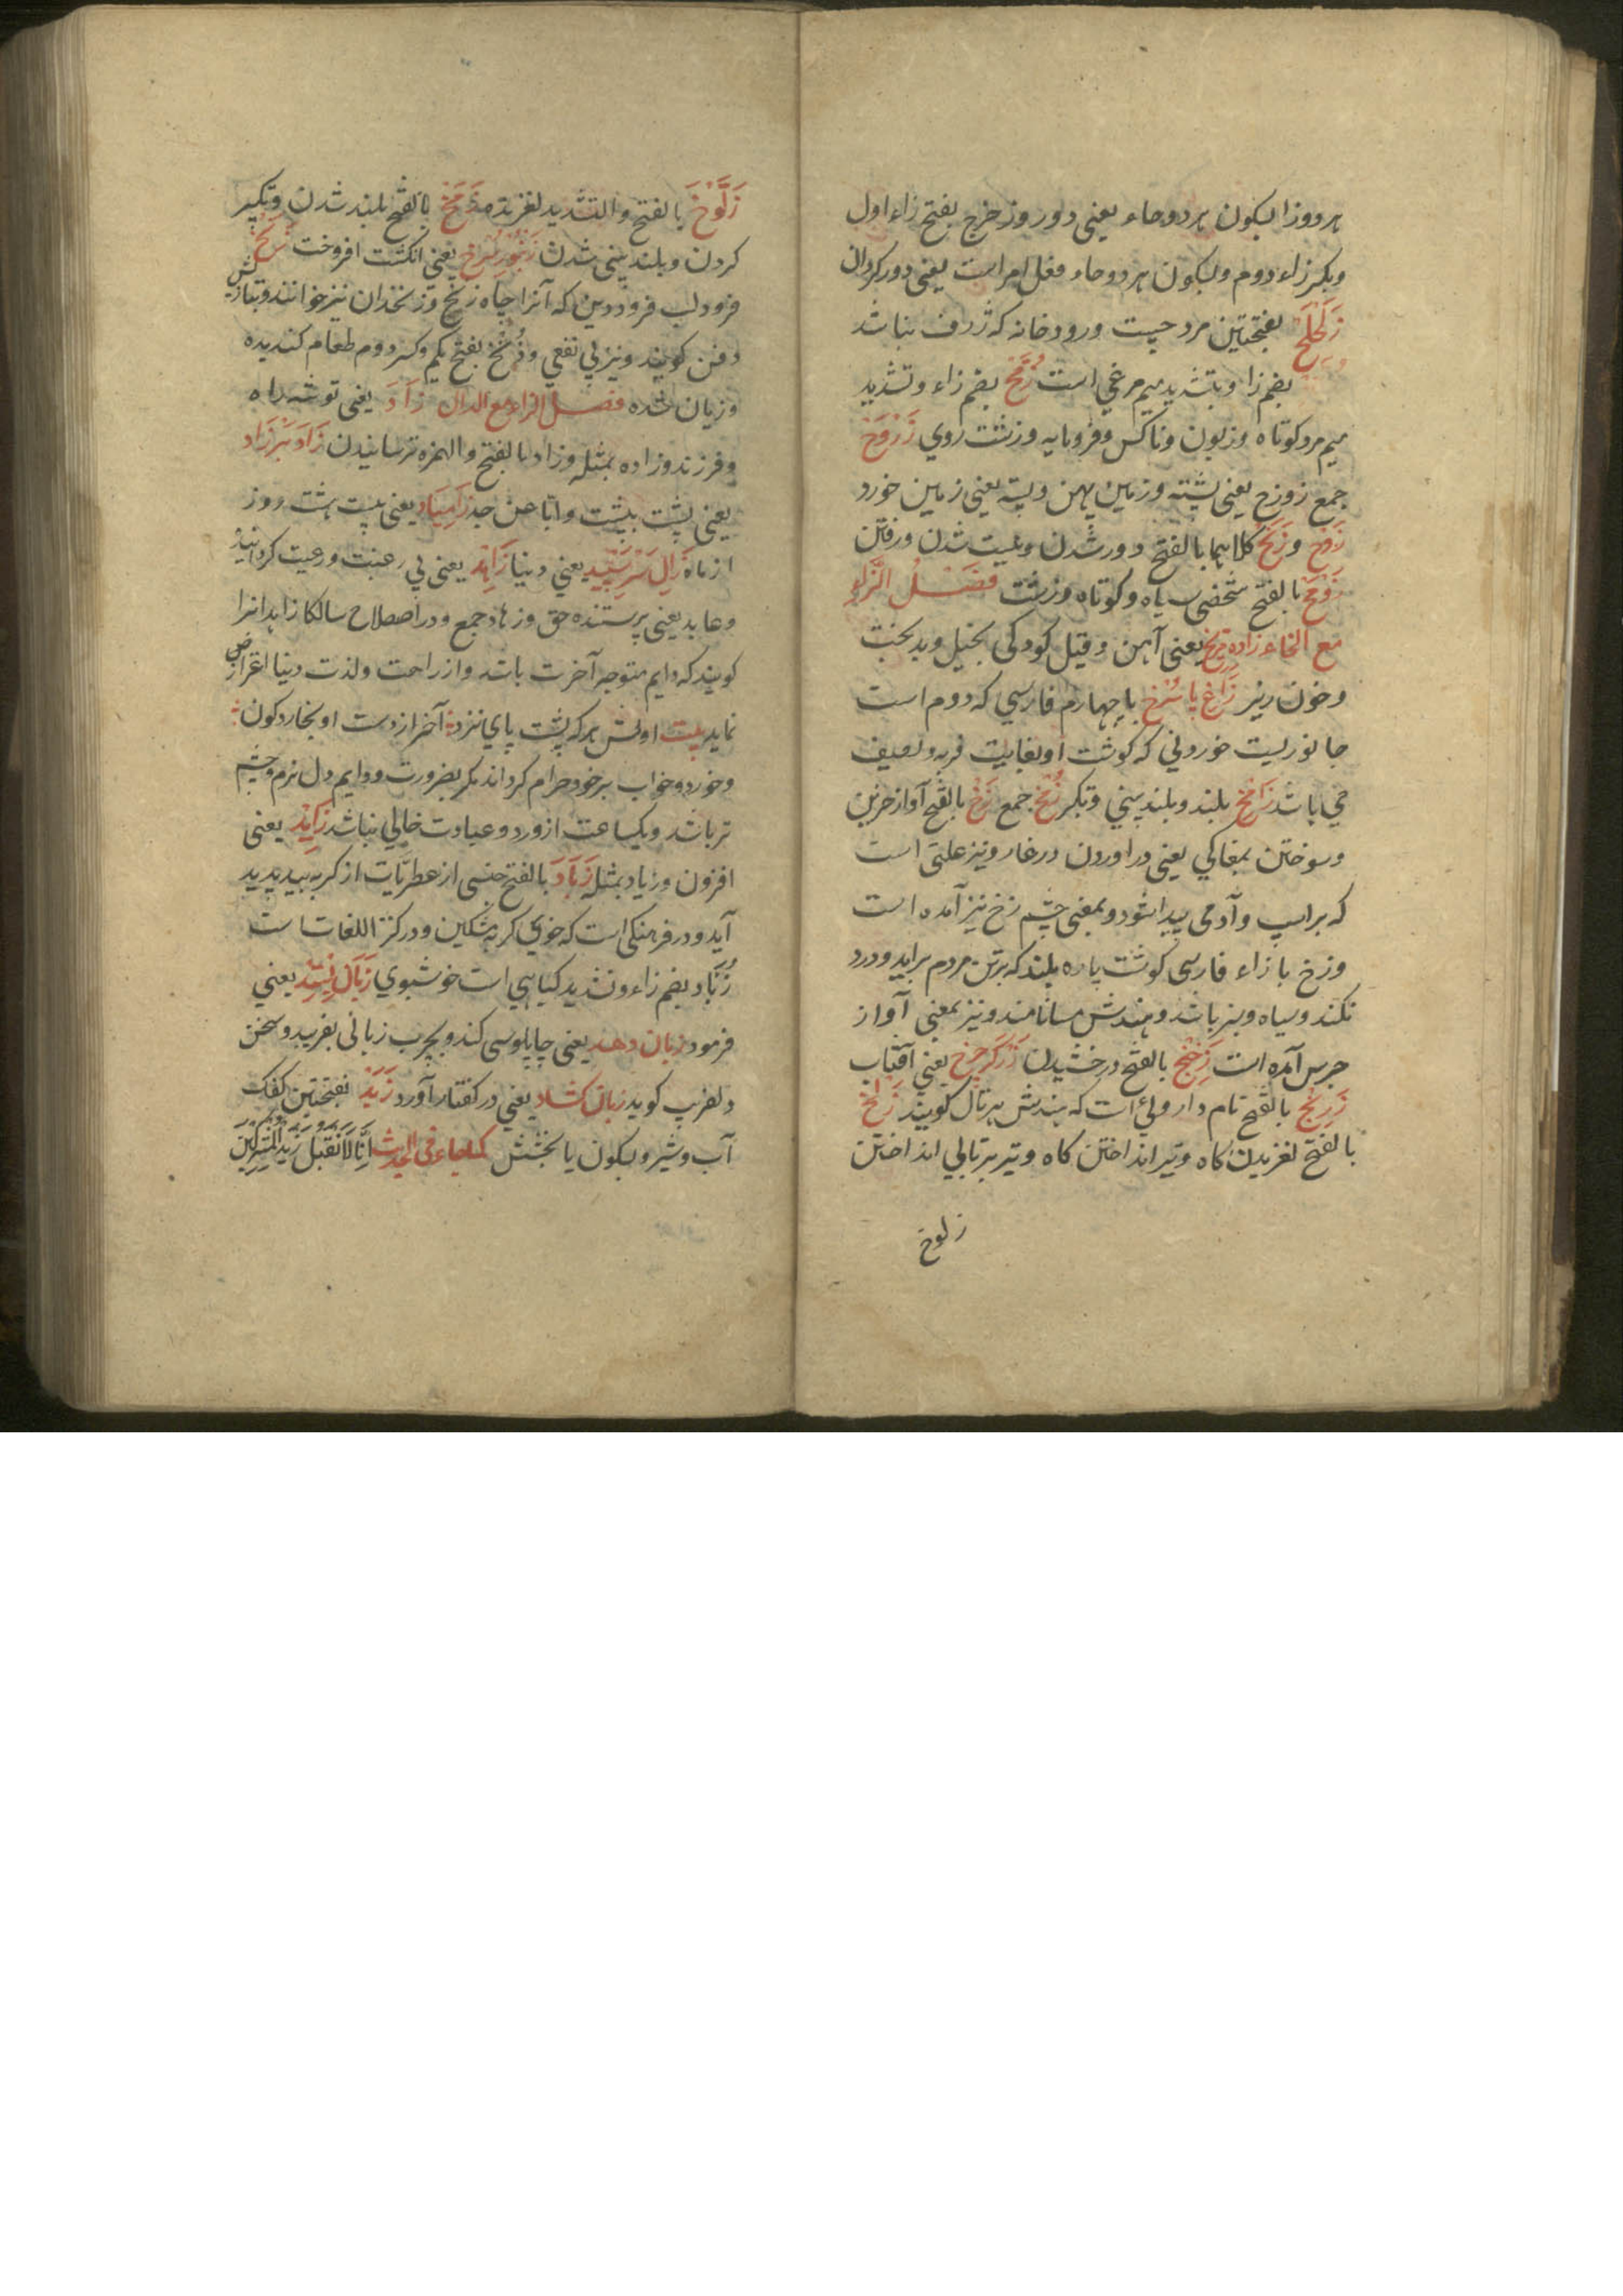 هر دو زا بسکون هر دو حاء یعنی دور و زحزح بفتح زاء اول
وبکسر زاء دوم وبسکون هر دو حاء فعل امر است یعنی دور کردان
زَلَحلَح بفتحتین مرد چست ورودخانه که ژرف نباشد
بضم زا وبتشدید میم مرغی است زُمَّح بضم زاء وتشدید
میم مرد کوتاه وزبون وناکس وفرومایه وزشت روی زَرْوَح
جمع زوزح یعنی پشته وزمین پهن وپسته یعنی زمین خورد
و زَیَح کلاهما بالفتح دور شدن ونیست شدن ورفتن
زَوْمَح بالفتح شخصی سیاه وکوتاه وزشت فصل الزاء
مع الخاء زاده مریخ یعنی آهن وقیل کودکی بخیل وبدبخت
وخون ریز زَاغِ پا سُرْخ با چهارم فارسی که دوم است
جانوریست خوردنی که کوشت او بغایت فربه ولطیف
می باشد زَامخ بلند وبلند بینی وبکسر زُمَّخ جمع زَخ بالفتح آواز حزین
وسوختن بمغاکی یعنی در اوردن در غار ونیز علتی است
که بر اسپ وآدمی پیدا شود وبمعنی چشم زخ نیز آمده است
وزخ با زاء فارسی کوشت پاره بلند که برتن مردم براید ودرد
نکند وسیاه وسبز باشد وهندش مسا نامند ونیز بمعنی آواز
جرس آمده است زَخِیخ بالفتح درخشیدن زَرْکَرِ چرخ یعنی آفتاب
زَرنِیخ بالفتح نام داروئی است که هندش هرتال کویند زَلْخ
بالفتح لغزیدن کاه وتیر انداختن کاه وتیر پرتابی انداختن
زلوخ
زَلُّوْخ بالفتح والتشدید لغزیدن زَمْخ بالفتح بلند شدن وتکبر
کردن وبلند بینی شدن زَنبُورِ سُرخ یعنی انکشت افروخت زَنَخ
فرود لب فرودین که آنرا چاه زنخ وزنخدان نیز خوانند وبتازیش
ذقن کویند ونیز بی نفعی وزَنِخ بفتح یکم وکسر دوم طعام کندیده
وزیان شده فصل الزاء مع الدال زَاد یعنی توشه راه
وفرزند وزاده بمثله وزاد بالفتح والهمزه ترسانیدن زَاد بَر زَاد
یعنی پشت به پشت وابا عن جد زَامِیَاد یعنی بیست هشت روز
از ماه زَالِ سَرسَپِید یعنی دنیا زَاهِد یعنی بی رغبت ورعیت کرداننیده
وعابد یعنی پرستنده حق وزهاد جمع ودر اصطلاح سالکا زاهد آنرا
کویند که دایم متوجه آخرت باشد واز راحت ولذت دنیا اعراض
نماید بیت اولش هر که پشت پای نزد آخر از دست او بخارد کون
وخورد وخواب بر خود حرام کرداند مکر بضرورت ودایم دل نرم وچشم
تر باشد ویکساعت از ورد وعبادت خالی نباشد زَایِد یعنی
افزون وزیاد بمثله زَبَاد بالفتح جنسی از عطریّات از کربه بید پدید
آید ودر فرهنکی است که خوی کربه مشکین ودر کنز اللغات است
زُبَّاد بضم زاء وتشدید کیاهی است خوشبوی زَبَان بَسْتِد یعنی
فرمود زبان دهد یعنی چاپلوسی کند وبچرب زبانی بفریبد وسخن
دلفریب کوید زبان کشاد یعنی در کفتار آورد زَبَد بفتحتین کفک
آب وشیر وبسکون با بخشش کما جاء فی الحدیث اِنَّا لَا نَقبَلُ زَبْدَ المُشرِکِین